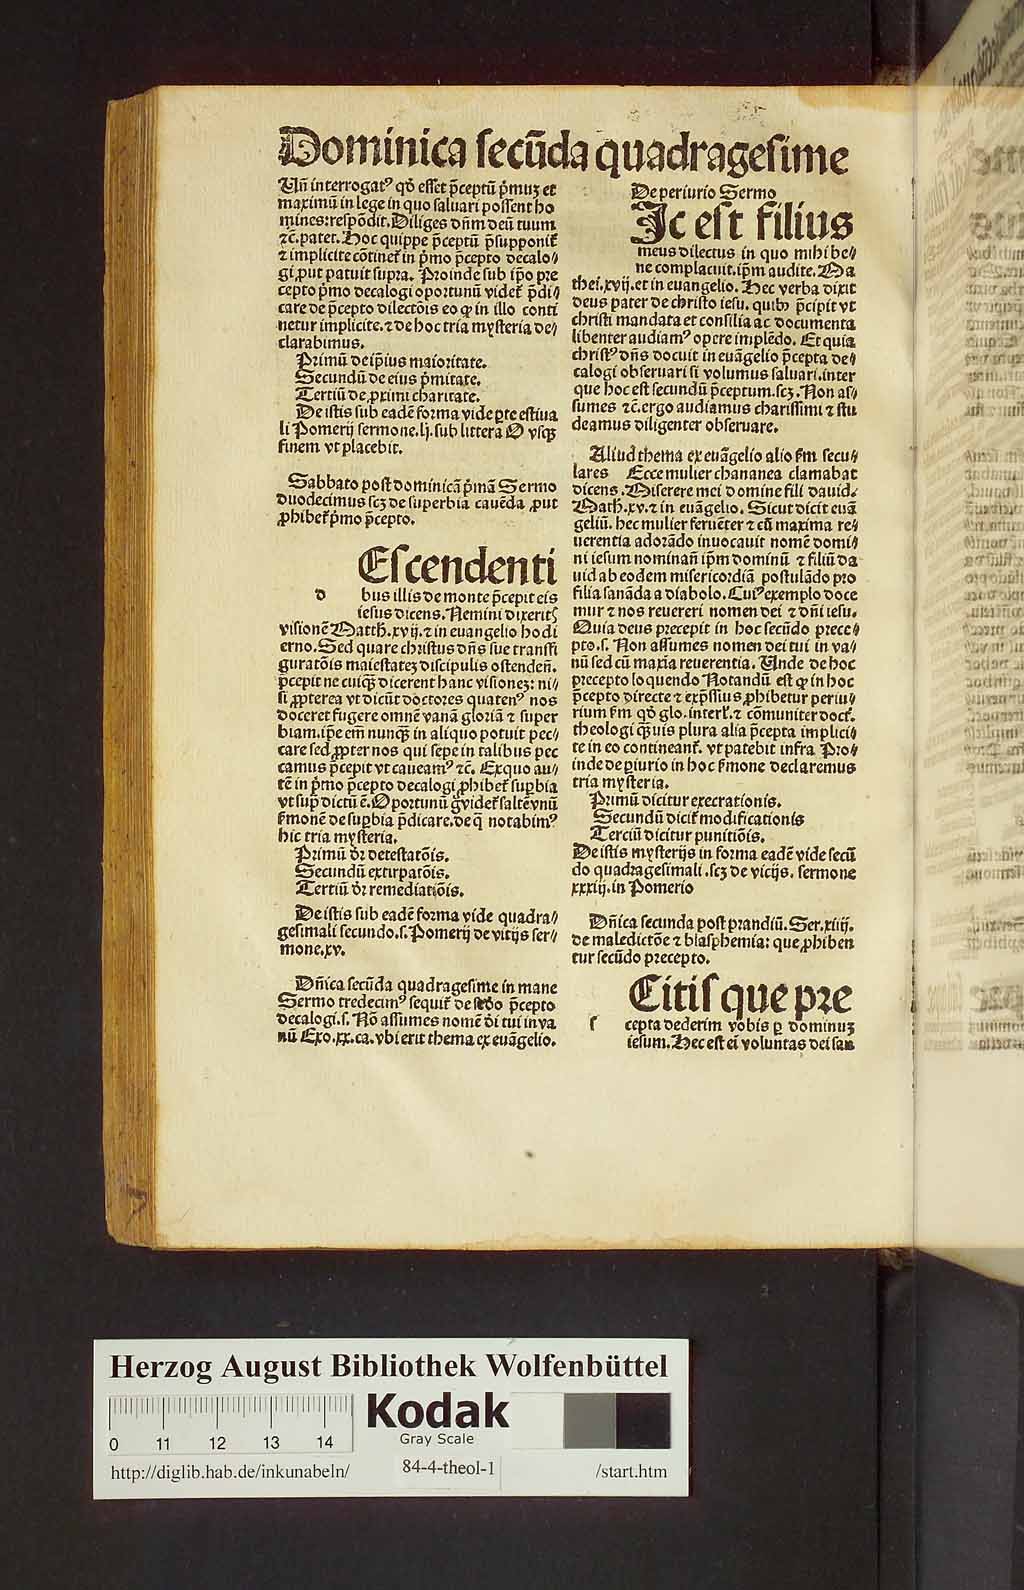 Dominica secūda quadragesime
Uñ interrogatꝰ qď esset p̄ceptū p̄muꝫ et
maximū in lege in quo saluari possent ho
mines: respōdit. Diliges dn̄m deū tuum
⁊c̄. patet. Hoc quippe p̄ceptū p̄supponit᷑
⁊ implicite cōtinet᷑ in p̄mo p̄cepto decalo⸗
gi ꝓut patuit supra. Proinde sub ip̄o pre
cepto p̄mo decalogi oportunū videt᷑ p̄di⸗
care de p̄cepto dilectōis eo ꝙ in illo conti
netur implicite. ⁊ de hoc tria mysteria de⸗
clarabimus.
Primū de ip̄ius maioritate.
Secundū de eius p̄mitate.
Tertiū de ꝓximi charitate.
De istis sub eadē forma vide ꝑte estiua
li Pomerij sermone. lj. sub littera O vsqꝫ
finem vt placebit.
Sabbato post dominicā p̄mā Sermo
duodecimus scꝫ de superbia cauēda ꝓut
ꝓhibet᷑ p̄mo p̄cepto.
EScendenti
d bus illis de monte p̄cepit eis
iesus dicens. Nemini dixeritꝭ
visionē Matth. xvij. ⁊ in euangelio hodi
erno. Sed quare christus dn̄s sue transfi
guratōis maiestateꝫ discipulis ostendeñ.
p̄cepit ne cuiqꝫ dicerent hanc visioneꝫ: ni⸗
si ꝓpterea vt dicūt doctores quatenꝰ nos
doceret fugere omnē vanā gloriā ⁊ super
biam. ip̄e em̄ nunqꝫ in aliquo potuit pec⸗
care sed ꝓpter nos qui sepe in talibus pec
camus p̄cepit vt caueamꝰ ⁊c̄. Ex quo au⸗
tē in p̄mo p̄cepto decalogi ꝓhibet᷑ suꝑbia
vt supᷓ dictū ē. Oportunū gͥ videt᷑ saltē vnū
ẜmonē de suꝑbia p̄dicare. de qͣ notabimꝰ
hic tria mysteria.
Primū dr̄ detestatōis.
Secundū extirpatōis.
Tertiū dr̄ remediatiōis.
De istis sub eadē forma vide quadra⸗
gesimali secundo. s. Pomerij de vitijs ser⸗
mone. xv.
Dn̄ica secūda quadragesime in mane
Sermo tredecimꝰ sequit᷑ de scḋo p̄cepto
decalogi. s. Nō assumes nomē dei tui in va
nū Exo. xx. ca. vbi erit thema ex euāgelio.
De periurio Sermo
HIc est filius
meus dilectus in quo mihi be⸗
ne complacuit. ip̄m audite. Ma
thei. xvij. et in euangelio. Hec verba dixit
deus pater de christo iesu. quibꝰ p̄cipit vt
christi mandata et consilia ac documenta
libenter audiamꝰ opere implēdo. Et quia
christꝰ dn̄s docuit in euāgelio p̄cepta de⸗
calogi obseruari si volumus saluari. inter
que hoc est secundū p̄ceptum. scꝫ. Non as⸗
sumes ⁊c̄. ergo audiamus charissimi ⁊ stu
deamus diligenter obseruare.
Aliud thema ex euāgelio alio ẜm secu⸗
lares Ecce mulier chananea clamabat
dicens. Miserere mei domine fili dauid.
Math. xv. ⁊ in euāgelio. Sicut dicit euā
geliū. hec mulier feruēter ⁊ cū maxima re⸗
uerentia adorādo inuocauit nomē domi⸗
ni iesum nominañ ip̄m dominū ⁊ filiū da
uid ab eodem misericordiā postulādo pro
filia sanāda a diabolo. Cuiꝰ exemplo doce
mur ⁊ nos reuereri nomen dei ⁊ dn̄i iesu.
Quia deus precepit in hoc secūdo prece⸗
pto. s. Non assumes nomen dei tui in va⸗
nū sed cū maxīa reuerentia. Unde de hoc
precepto loquendo Notandū est ꝙ in hoc
p̄cepto directe ⁊ exp̄ssius ꝓhibetur periu⸗
rium ẜm qď glo. interl᷑. ⁊ cōmuniter doct᷑.
theologi qꝫuis plura alia p̄cepta implici⸗
te in eo contineant᷑. vt patebit infra Pro⸗
inde de ꝑiurio in hoc ẜmone declaremus
tria mysteria.
Primū dicitur execrationis.
Secundū dicit᷑ modificationis
Terciū dicitur punitiōis.
De istis mysterijs in forma eadē vide secū
do quadragesimali. scꝫ de vicijs. sermone
xxxij. in Pomerio
Dn̄ica secunda post prandiū. Ser. xiiij.
de maledictōe ⁊ blasphemia: que ꝓhiben
tur secūdo precepto.
CItis que pre
s cepta dederim vobis ꝑ dominuꝫ
iesum. Hec est ei voluntas dei san
Herzog August Bibliothek Wolfenbüttel
0 11 12 13 14
Kodak
Gray Scale
http://diglib.hab.de/inkunabeln/ 84-4-theol-1 /start.htm